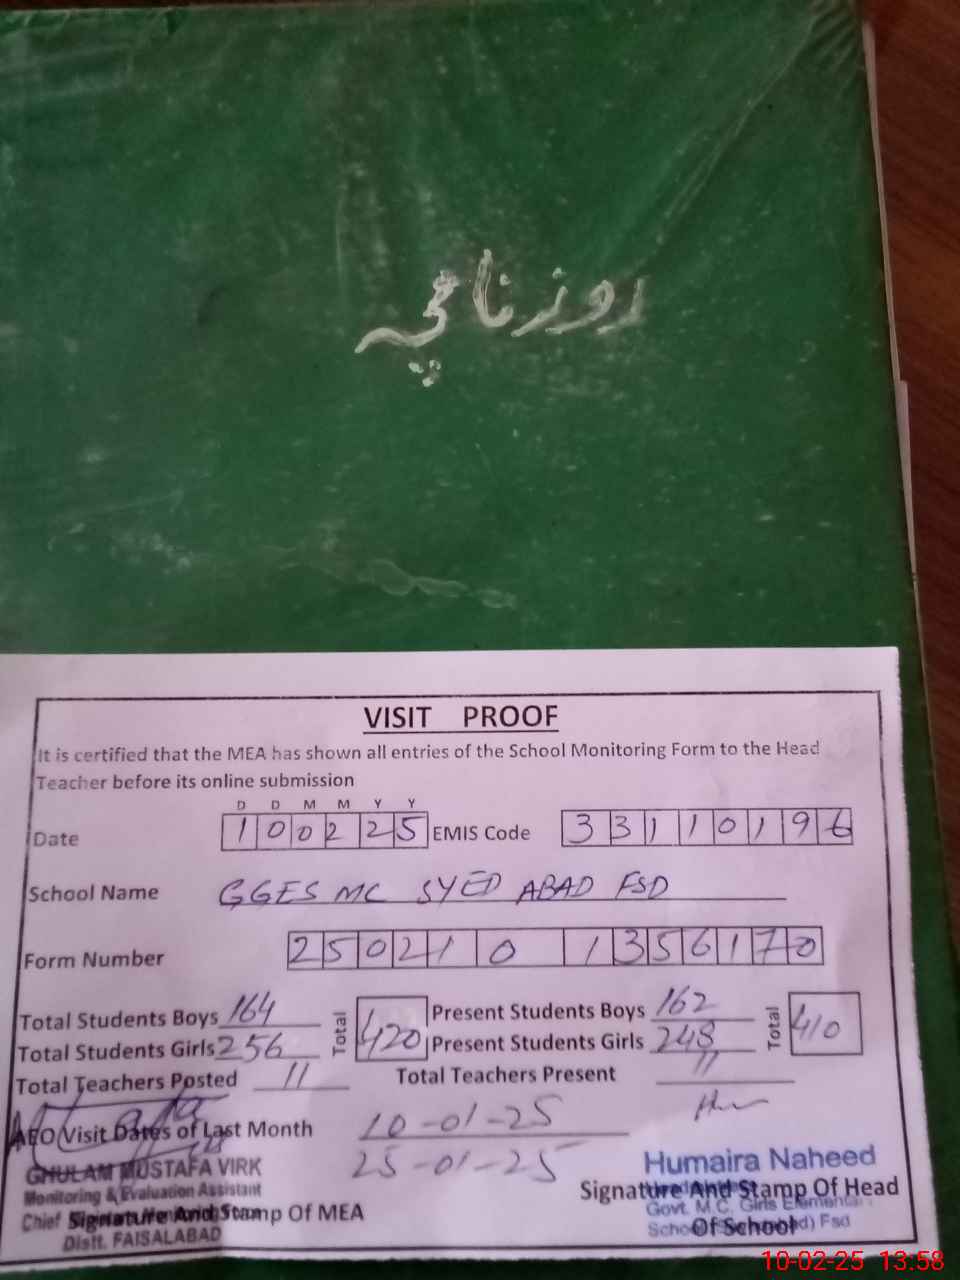 روزنامچہ
VISIT PROOF
It is certified that the MEA has shown all entries of the School Monitoring Form to the Head
Teacher before its online submission
D D M M Y Y
Date 1 0 0 2 2 5 EMIS Code 3 3 1 1 0 1 9 6
School Name GGES MC SYED ABAD FSD
Form Number 2 5 0 2 1 0 1 3 5 6 1 7 0
Total Students Boys 164 Total 420 Present Students Boys 162 Total 410
Total Students Girls 256 Present Students Girls 248
Total Teachers Posted 11 Total Teachers Present 11
AEO Visit Dates of Last Month 10-01-25
25-01-25
GHULAM MUSTAFA VIRK
Monitoring & Evaluation Assistant
Chief
Signature And Stamp Of MEA
Distt. FAISALABAD
Humaira Naheed
Signature And Stamp Of Head
Govt. M.C. Girls Elementary
Of School
School Fsd
10-02-25 13:58